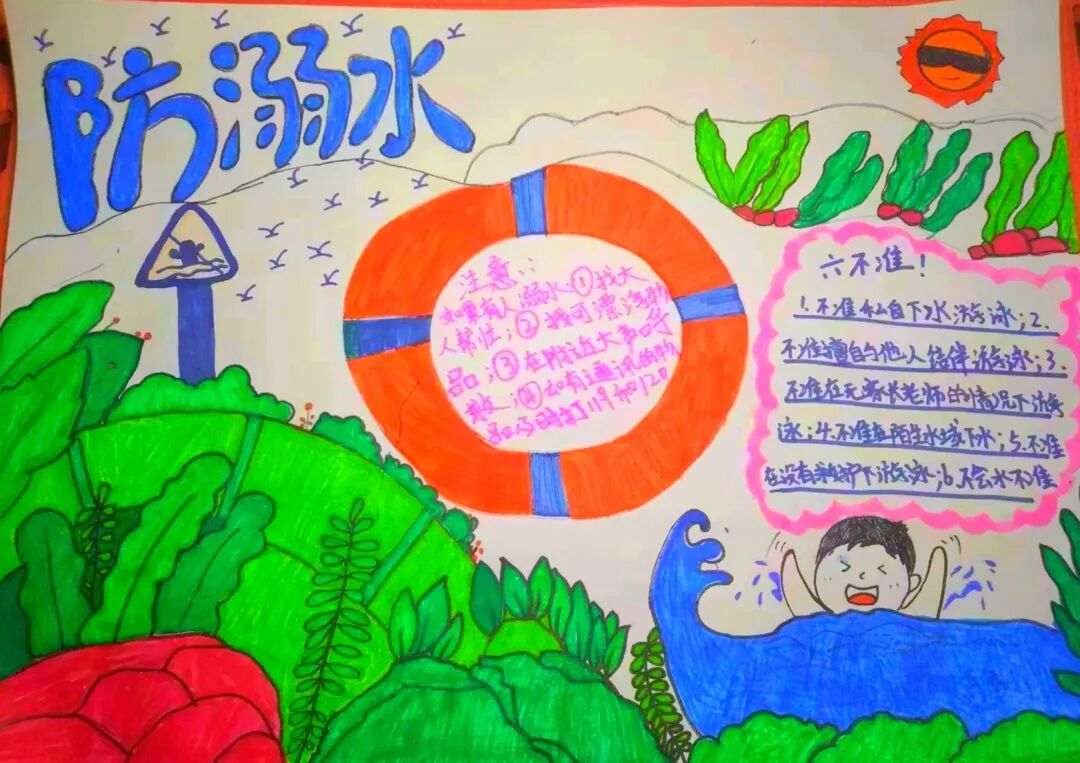 防溺水
注意:
如果有人溺水:①找大
人帮忙;②找可漂浮物
品;③在附近大声呼
救;④如有通讯的物
品马上打119和120
六不准!
1.不准私自下水游泳;2.
不准擅自与他人结伴游泳;3.
不准在无家长老师的情况下游
泳;4.不准在陌生水域下水;5.不准
在没有救护下游泳;6.不会水不准